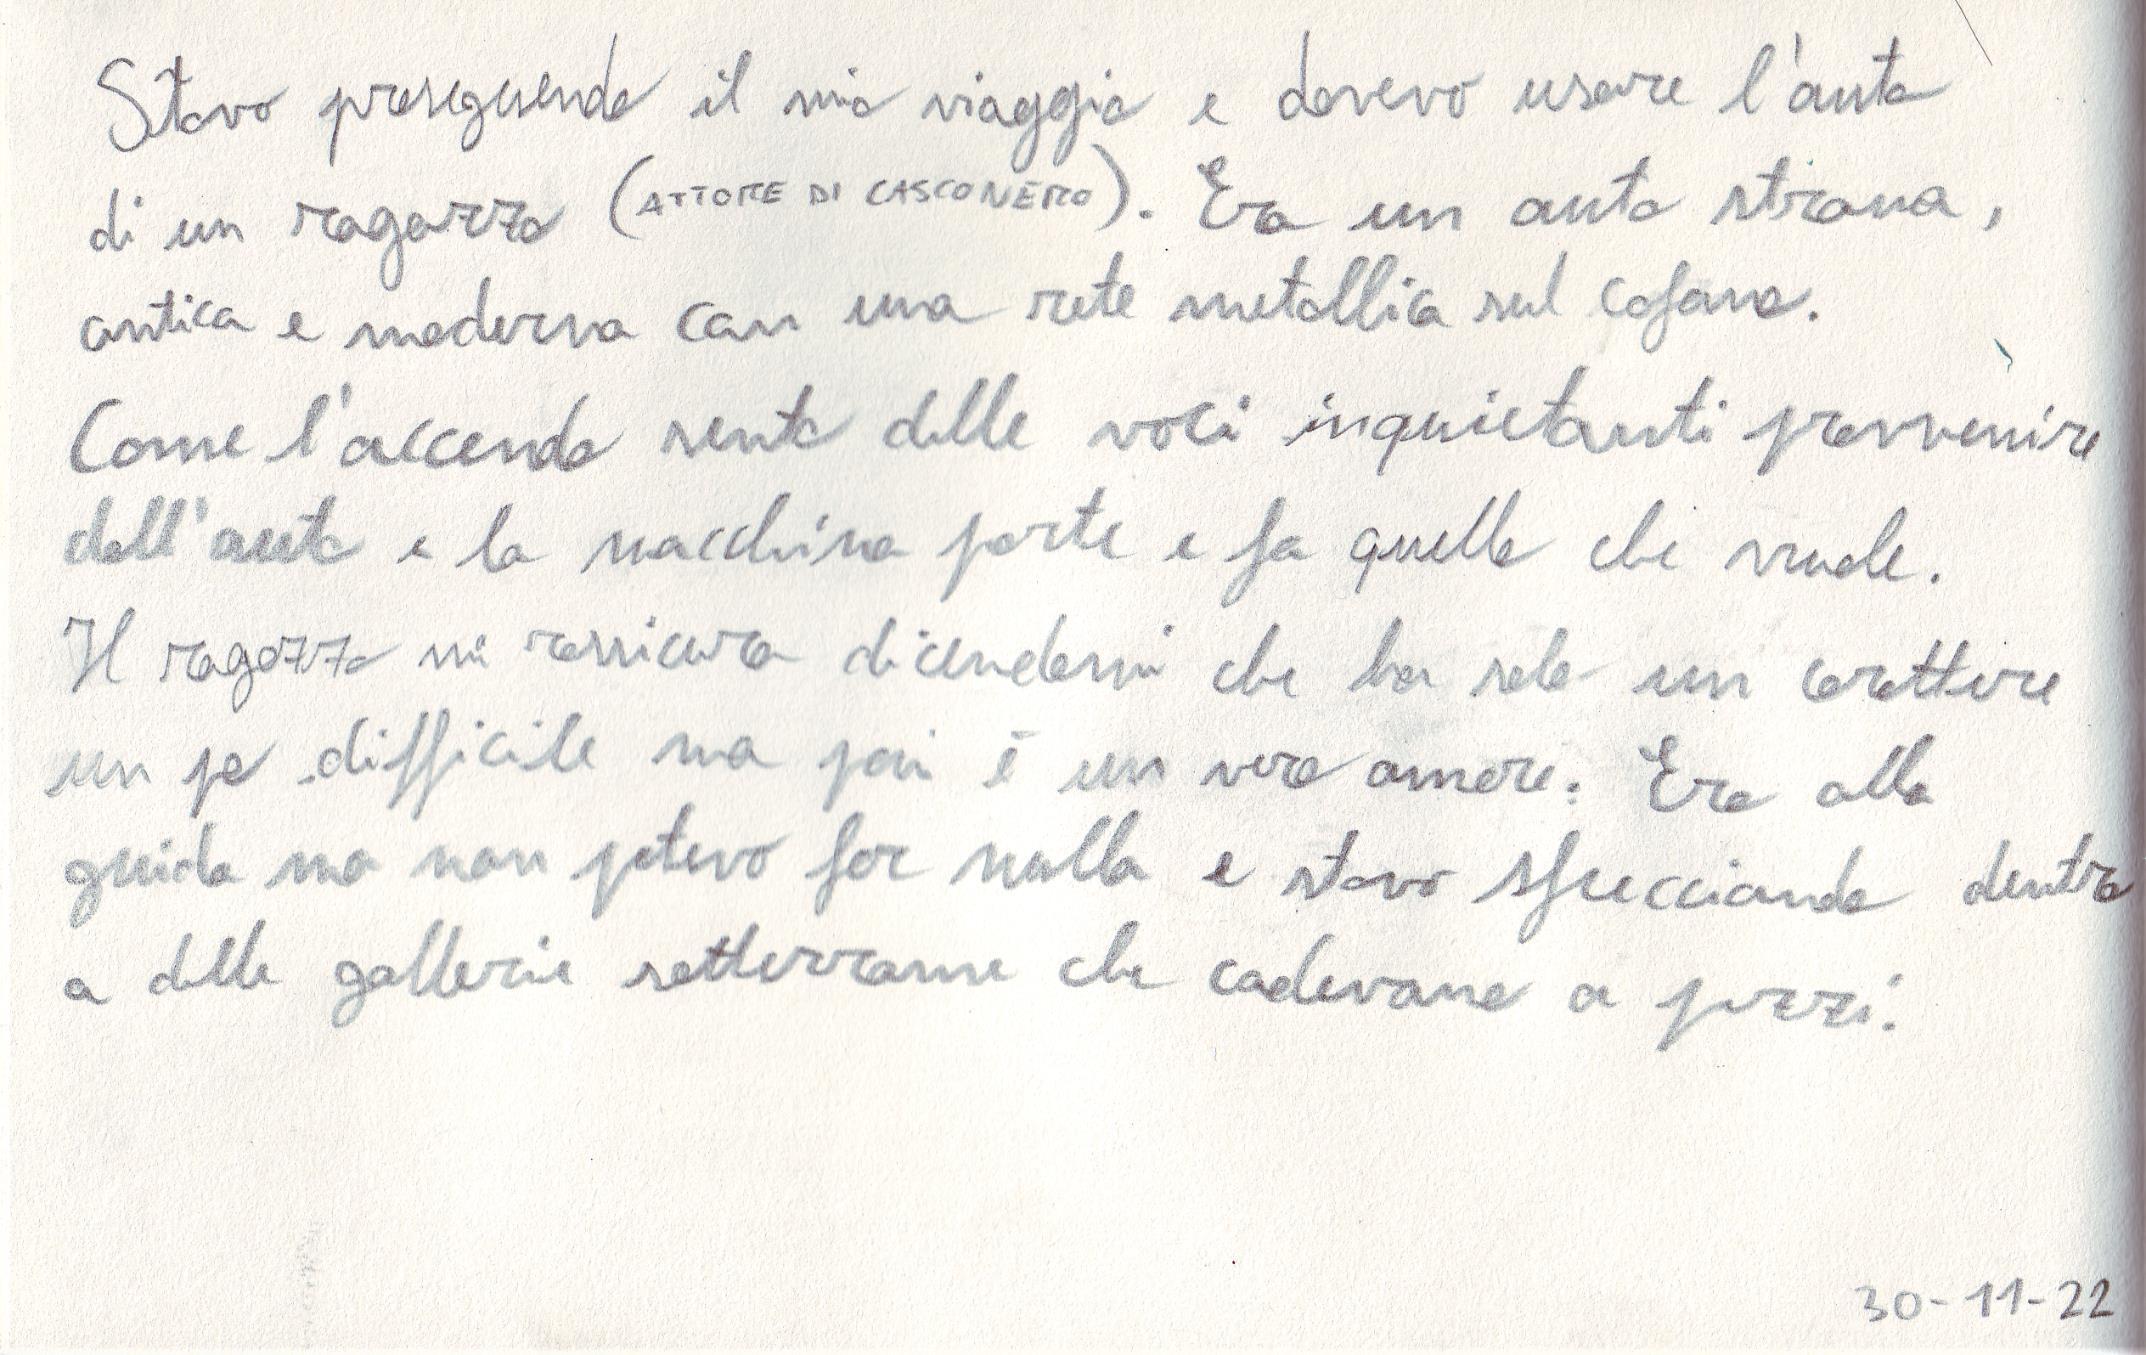 Stavo proseguendo il mio viaggio e dovevo usare l'auto
di un ragazzo (ATTORE DI CASCONERO). Era un auto strana,
antica e moderna con una rete metallica sul cofano.
Come l'accendo sento delle voci inquietanti provvenire
dall'auto e la macchina parte e fa quello che vuole.
Il ragazzo mi rassicura dicendomi che ha solo un carattere
un po difficile ma poi è un vero amore. Ero alla
guida ma non potevo far nulla e stavo sfrecciando dentro
a delle gallerie sotterranne che cadevano a pezzi.
30-11-22